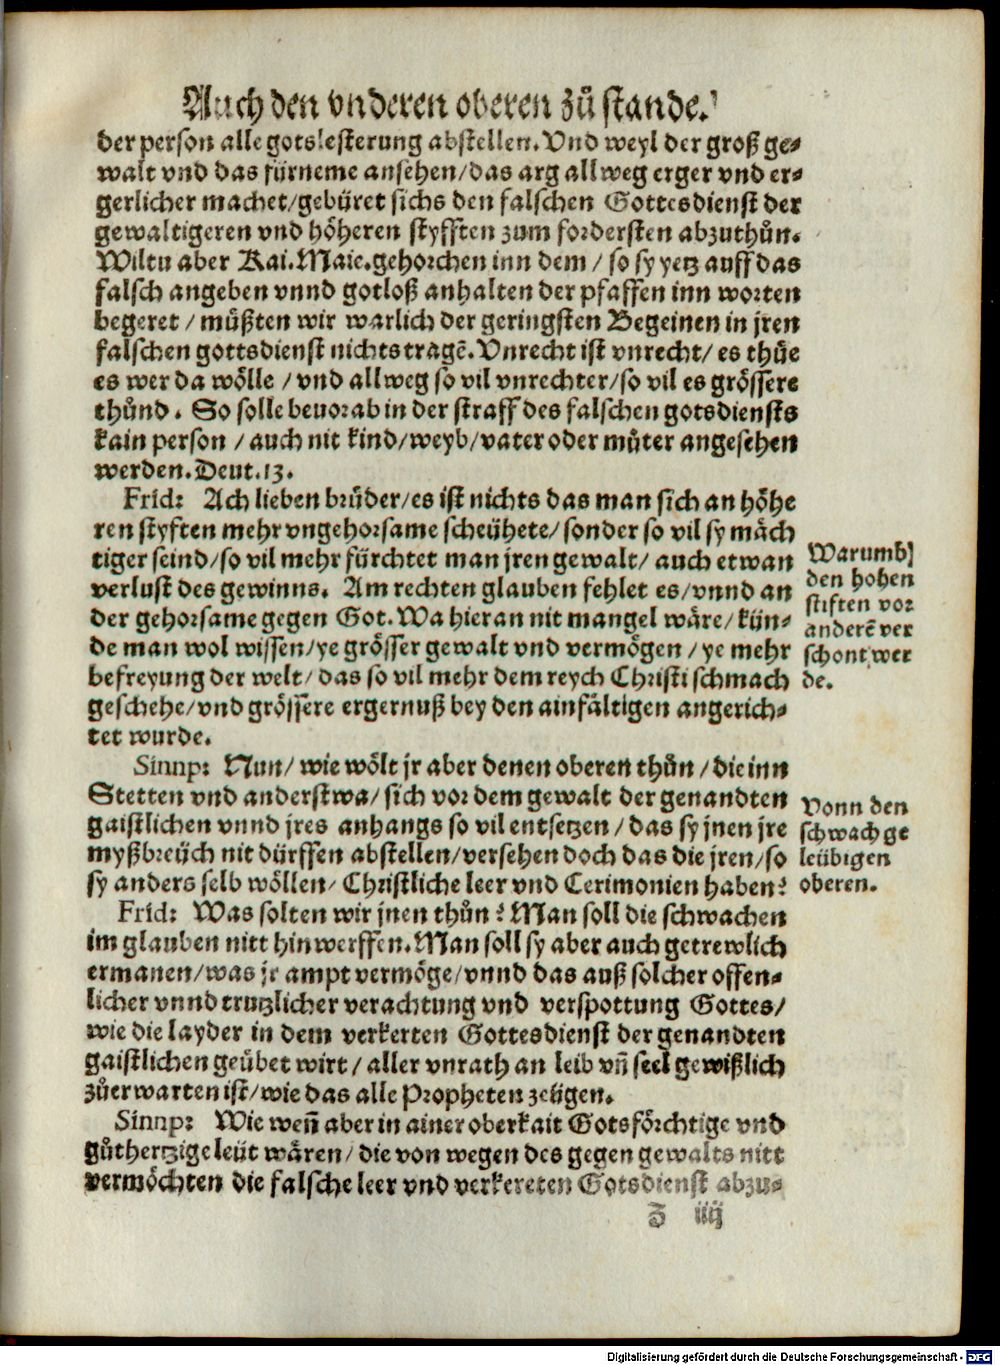 Auch den vnderen oberen zů stande.
der person alle gotslesterung abstellen. Vnd weyl der groß ge⸗
walt vnd das fürneme ansehen/das arg allweg erger vnd er⸗
gerlicher machet/gebüret sichs den falschen Gottesdienst der
gewaltigeren vnd höheren styfften zum fordersten abzuthůn.
Wiltu aber Kai. Maie. gehorchen inn dem / so sy yetz auff das
falsch angeben vnnd gotloß anhalten der pfaffen inn worten
begeret / müßten wir warlich der geringsten Begeinen in jren
falschen gottsdienst nichts tragē. Vnrecht ist vnrecht/ es thůe
es wer da wölle / vnd allweg so vil vnrechter/so vil es grössere
thůnd. So solle beuorab in der straff des falschen gotsdiensts
kain person / auch nit kind/weyb/vater oder můter angesehen
werden. Deut. 13.
Frid: Ach lieben brüder/es ist nichts das man sich an höhe
ren styften mehr vngehorsame scheühete/sonder so vil sy mäch
tiger seind/so vil mehr fürchtet man jren gewalt/ auch etwan
verlust des gewinns. Am rechten glauben fehlet es/vnnd an
der gehorsame gegen Got. Wa hieran nit mangel wäre/ kün⸗
de man wol wissen/ye grösser gewalt vnd vermögen/ ye mehr
befreyung der welt/ das so vil mehr dem reych Christi schmach
geschehe/vnd grössere ergernuß bey den ainfältigen angerich⸗
tet wurde.
Warumb
den hohen
stiften vor
anderē ver
schont wer
de.
Sinnp: Nun/ wie wölt jr aber denen oberen thůn / die inn
Stetten vnd anderstwa/ sich vor dem gewalt der genandten
gaistlichen vnnd jres anhangs so vil entsetzen / das sy jnen jre
myßbreüch nit dürffen abstellen/versehen doch das die jren/so
sy anders selb wöllen/ Christliche leer vnd Cerimonien haben?
Vonn den
schwachge
leübigen
oberen.
Frid: Was solten wir jnen thůn? Man soll die schwachen
im glauben nitt hinwerffen. Man soll sy aber auch getrewlich
ermanen/was jr ampt vermöge/vnnd das auß solcher offen⸗
licher vnnd trutzlicher verachtung vnd verspottung Gottes/
wie die layder in dem verkerten Gottesdienst der genandten
gaistlichen geübet wirt / aller vnrath an leib vn̄ seel gewißlich
zůerwarten ist/wie das alle Propheten zeügen.
Sinnp: Wie wen̄ aber in ainer oberkait Gotsförchtige vnd
gůthertzige leüt wären/ die von wegen des gegen gewalts nitt
vermöchten die falsche leer vnd verkereten Gotsdienst abzu⸗
Z iiij
Digitalisierung gefördert durch die Deutsche Forschungsgemeinschaft - DFG